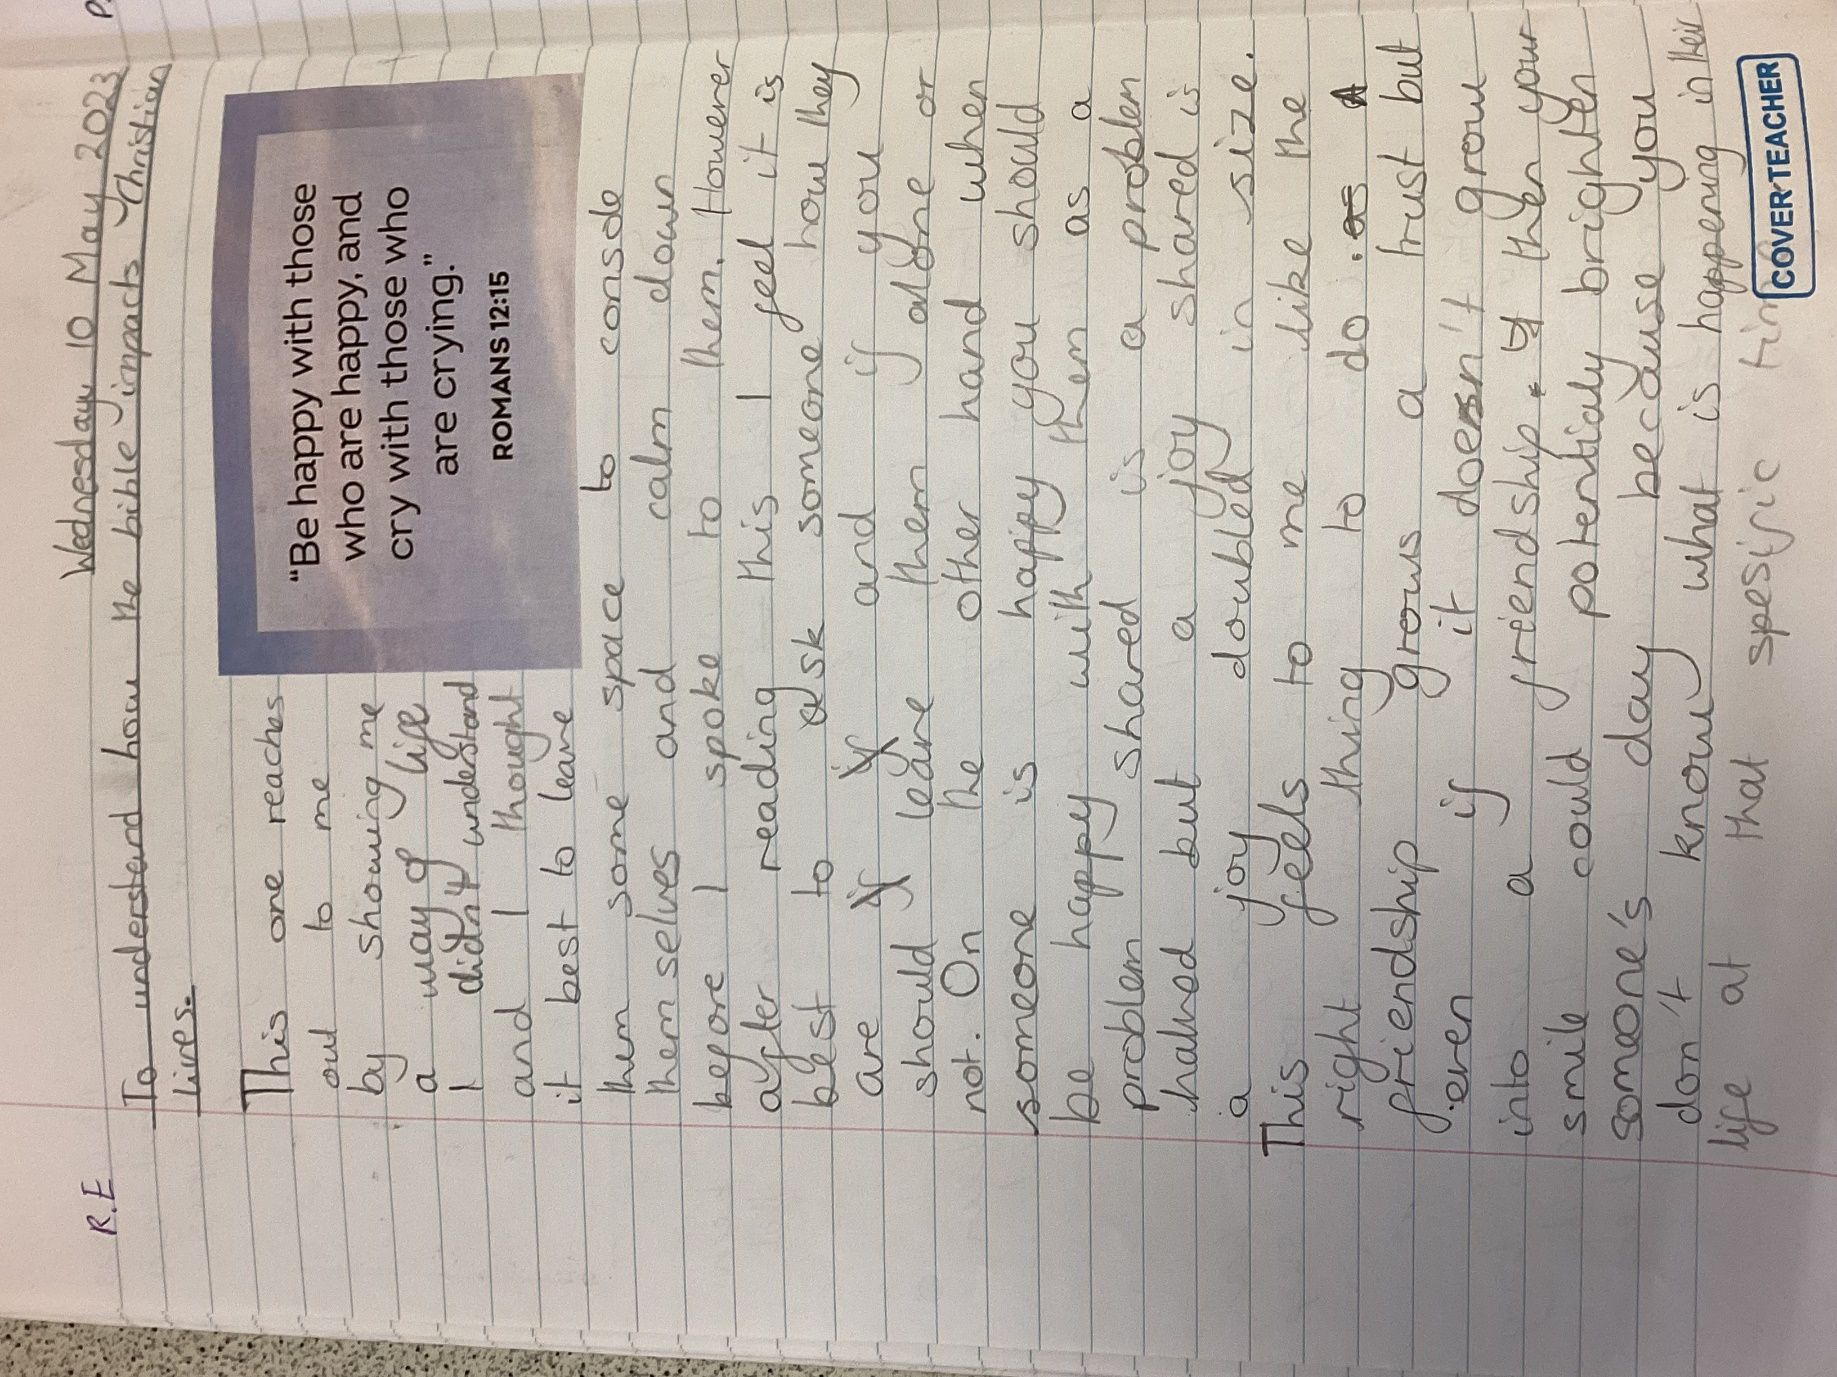 R.E
Wednesday 10 May 2023
To understand how the bible impacts Christian
lives.
"Be happy with those
who are happy, and
cry with those who
are crying."
ROMANS 12:15
This one reaches
out to me
by showing me
a way of life
I didn't understand
and I thought
it best to leave
them some space to console
them selves and calm down
before I spoke to them. However
after reading this I feel it is
best to ask someone how they
are if if and if you
should leave them if alone or
not. On the other hand when
someone is happy you should
be happy with then as a
problem shared is a problem
halved but a joy shared is
a joy doubled in size.
This feels to me like the
right thing to do. as A
friendship grows a trust but
even if it doesn't grow
into a friendship. then your
smile could potentialy brighten
someone's day because you
don't know what is happening in their
life at that spesific tim
COVER TEACHER